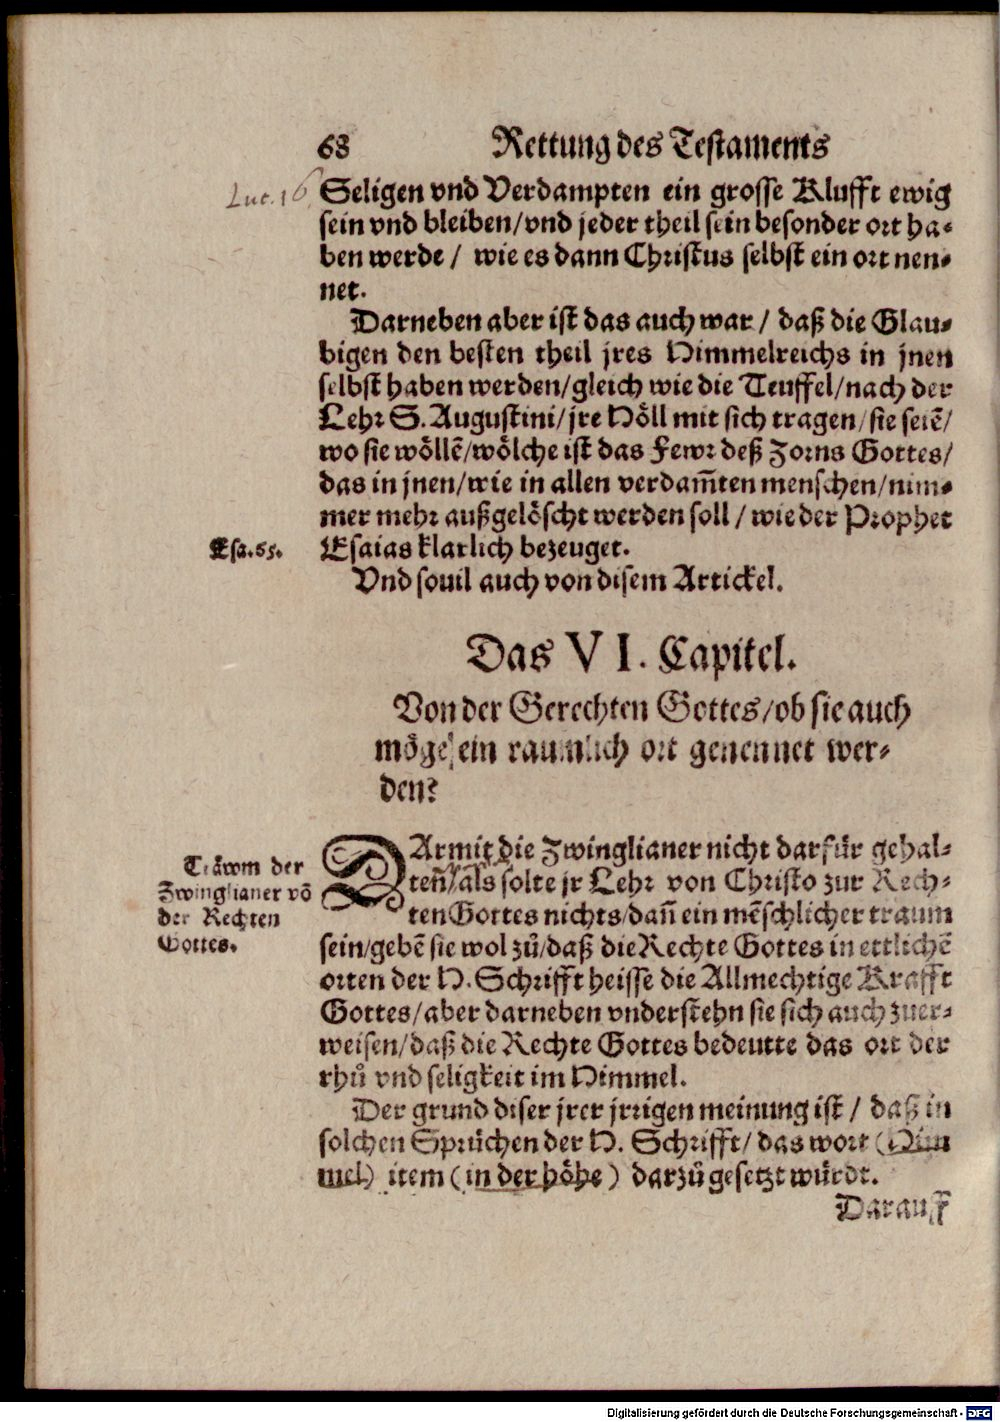 68 Rettung des Testaments
Luc. 16
Seligen vnd Verdampten ein grosse Klufft ewig
sein vnd bleiben/vnd jeder theil sein besonder ort ha-
ben werde / wie es dann Christus selbst ein ort nen-
net.
Darneben aber ist das auch war / daß die Glau-
bigen den besten theil jres Himmelreichs in jnen
selbst haben werden/gleich wie die Teuffel/nach der
Lehr S. Augustini/jre Höll mit sich tragen/sie seiẽ/
wo sie wöllẽ/wölche ist das Fewr deß Zorns Gottes/
das in jnen/wie in allen verdam̃ten menschen/nim-
mer mehr außgelöscht werden soll / wie der Prophet
Esa.65.
Esaias klarlich bezeuget.
Vnd souil auch von disem Artickel.
Das VI. Capitel.
Von der Gerechten Gottes/ob sie auch
möge ein raumlich ort genennet wer-
den?
Träwm der
Zwinglianer võ
der Rechten
Gottes.
DArmit die Zwinglianer nicht darfür gehal-
ten/als solte jr Lehr von Christo zur Rech-
ten Gottes nichts/dañ ein mẽschlicher traum
sein/gebẽ sie wol zů/daß die Rechte Gottes in ettlichẽ
orten der H. Schrifft heisse die Allmechtige Krafft
Gottes/aber darneben vnderstehn sie sich auch zuer-
weisen/daß die Rechte Gottes bedeutte das ort der
rhů vnd seligkeit im Himmel.
Der grund diser jrer jrrigen meinung ist / daß in
solchen Sprüchen der H. Schrifft/das wort (Him
mel) item (in der höhe) darzů gesetzt würdt.
Darauff
Digitalisierung gefördert durch die Deutsche Forschungsgemeinschaft - DFG